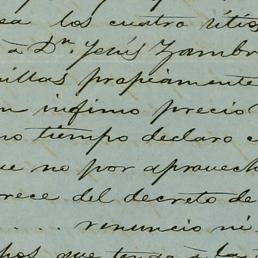 ea los cuatro sitios
à Dn. Jesús Zambr
illas propiamente
n infimo precio
mo tiempo declaro c
ue no por aprovech
rece del decreto de
. . . . . renuncio ni
pos que tengo à la